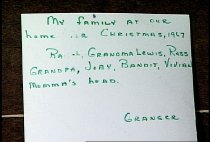 My family at our
home Christmas, 1967
Grandma Lewis, Ross
Grandpa, Joby, Bandit, Vivian
Momma's head.
Granger